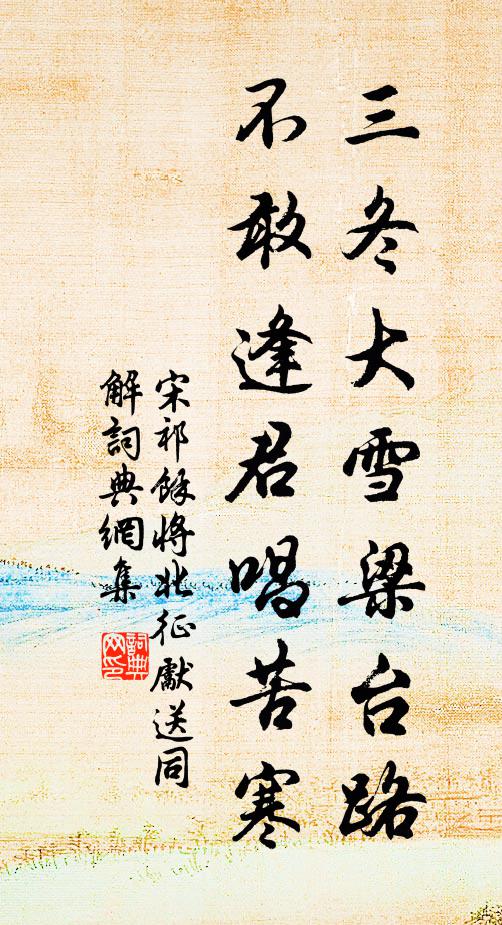 三冬大雪梁台路
不敢逢君唱苦寒
宋祁餘將北征獻送同
解詞典網集
詞典
网印